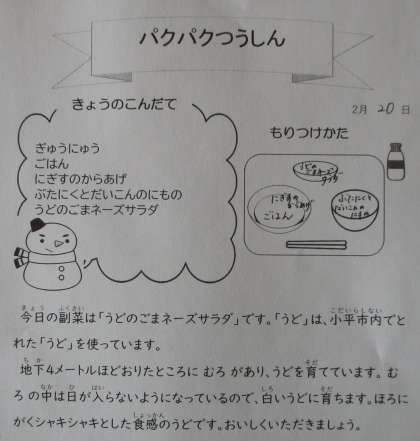 パクパクつうしん
きょうのこんだて
2月 20 日
ぎゅうにゅう
ごはん
にぎすのからあげ
ぶたにくとだいこんのにもの
うどのごまネーズサラダ
もりつけかた
うどの
ごまネーズ
サラダ
にぎすの
からあげ
ごはん
ぶたにくと
だいこんの
にもの
今日の副菜は「うどのごまネーズサラダ」です。「うど」は、小平市内でと
れた「うど」を使っています。
地下4メートルほどおりたところに むろ があり、うどを育てています。 む
ろ の中は日が入らないようになっているので、白いうどに育ちます。ほろに
がくシャキシャキとした食感のうどです。おいしくいただきましょう。